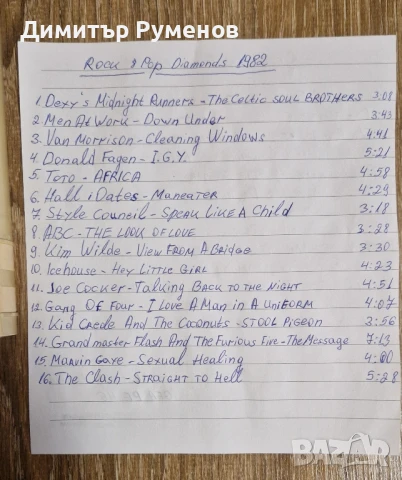 Димитър Руменов
Rock & Pop Diamonds 1982
1. Dexy's Midnight Runners - The Celtic SOUL BROTHERS 3:08
2 Men At Work - Down Under 3:43
3. Van Morrison - Cleaning Windows 4:41
4. Donald Fagen - I.G.Y. 5:21
5. Toto - AFRICA 4:58
6. Hall i Oates - Maneater 4:29
7. Style Council - Speak Like A Child 3:18
8 ABC - THE LOOK OF LOVE 3:28
9. Kim Wilde - View FROM A Bridge 3:30
10. Icehouse - Hey Little GIRL 4:23
11. Joe Cocker - Talking BACK TO THE NIGHT 4:51
12. Gang Of Four - I Love A Man in A UNIFORM 4:07
13. Kid Creole And The Coconuts - STOOL PIGEON 3:56
14. Grandmaster Flash And The Furious Five - The Message 7:13
15. Marvin Gaye - Sexual Healing 4:00
16. The Clash - STRAIGHT TO Hell 5:28
BAZAR